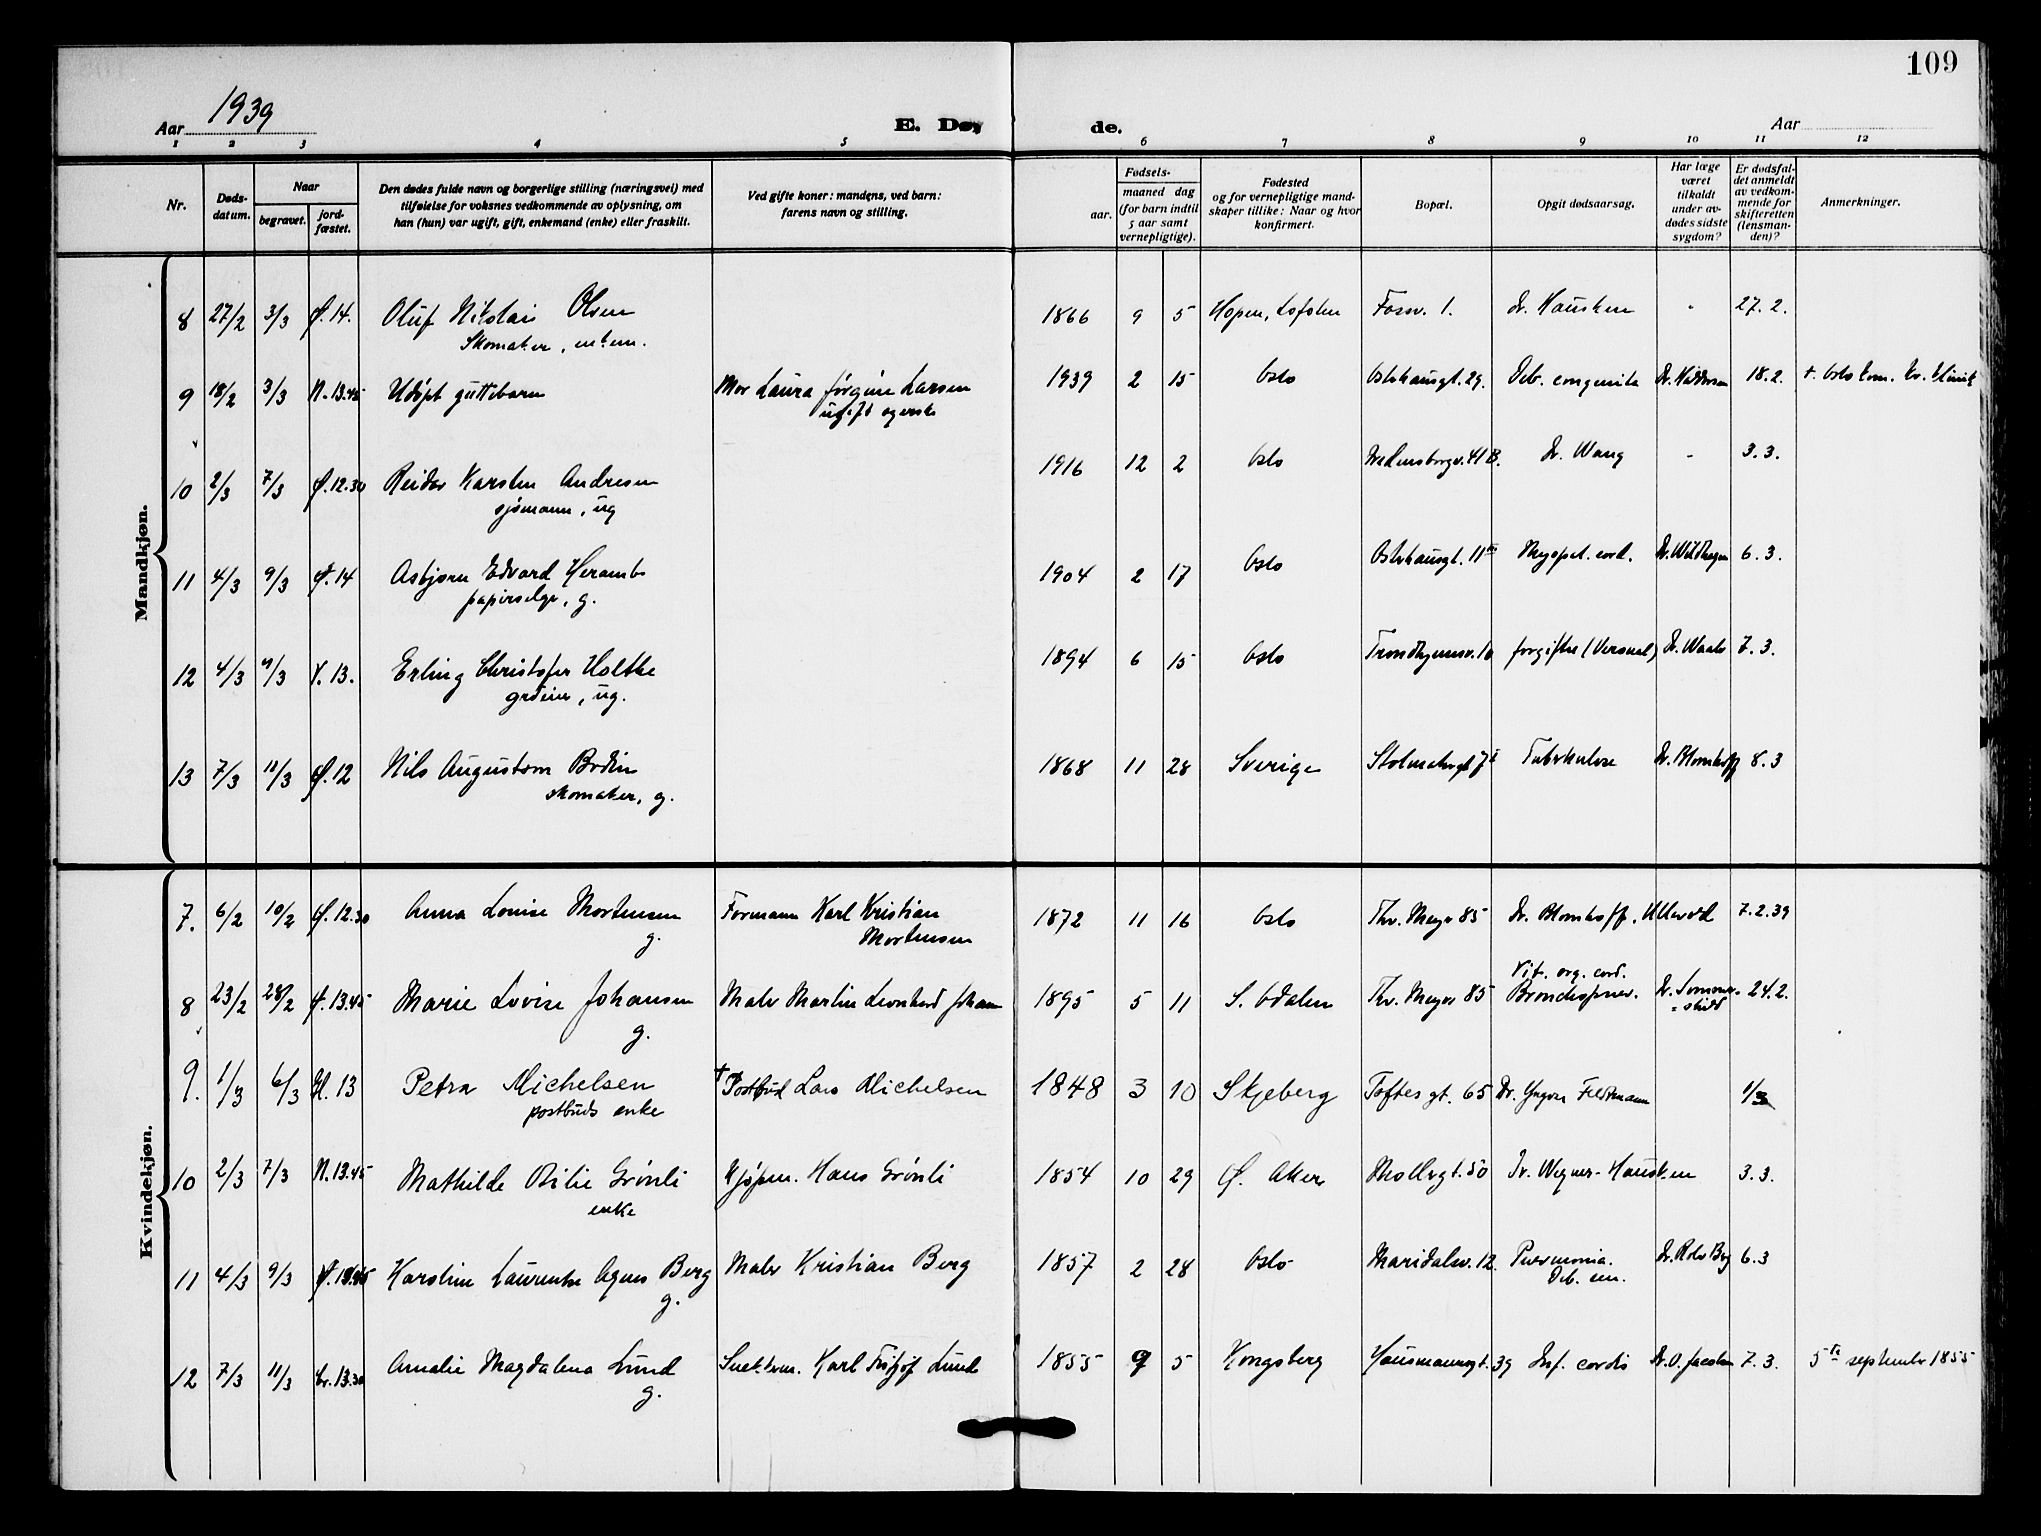 109
1939
Aar
E. Dø
de.
Aar
1 2 3 4 5 6 7 8 9 10 11 12
Nr.
Døds-
datum.
Naar
begravet.
jord-
fæstet.
Den dødes fulde navn og borgerlige stilling (næringsvei) med
tilføielse for voksnes vedkommende av oplysning, om
han (hun) var ugift, gift, enkemand (enke) eller fraskilt.
Ved gifte koner: mandens, ved barn:
farens navn og stilling.
Fødsels-
aar.
maaned dag
(for barn indtil
5 aar samt
vernepligtige).
Fødested
og for vernepligtige mand-
skaper tillike: Naar og hvor
konfirmert.
Bopæl.
Opgit dødsaarsag.
Har læge
været
tilkaldt
under av-
dødes sidste
sygdom?
Er dødsfal-
det anmeldt
av vedkom-
mende for
skifteretten
(lensman-
den)?
Anmerkninger.
Mandkjøn.
8 27/2 3/3 Ø. 14. Oluf Nikolai Olsen 1866 9 5 Hopen, Lofoten Fossv. 1. Dr. Hausken " 27. 2.
Skomaker, enkem.
9 18/2 3/3 N. 13.45 Udøpt guttebarn Mor Laura Jørgine Larsen 1939 2 15 Oslo Osterhausgt. 29. Deb. congenita 18. 2. † Oslo kom. kv. klinik
ugift
10 2/3 7/3 Ø. 12.30 Reidar Karsten Andresen 1916 12 2 Oslo Wedensborgv. 41 B. Dr. Wang " 3. 3.
sjømann, ug
11 4/3 9/3 Ø. 14 Asbjørn Edvard Heramb 1904 2 17 Oslo Osterhausgt. 11 cord. Dr. Wildhagen 6. 3.
papirselger, g.
12 4/3 9/3 V. 13. Erling Christofer Holtke 1894 6 15 Oslo Trondhjemsv. 10 forgiftet (Veronal) Dr. Waale 7. 3.
ug.
13 7/3 11/3 Ø. 12 Nils Augustom Bodin 1868 11 28 Sverige Stolmakergt 7 Tuberkulose Dr. Blomhoff 8. 3
skomaker, g.
Kvindekjøn.
7. 6/2 10/2 Ø. 12.30 Anna Louise Mortensen Formann Karl Kristian 1872 11 16 Oslo Thv. Meyer 85 Dr. Blomhoff. Ullevål 7. 2. 39
g. Mortensen
8 23/2 28/2 Ø. 13.45 Marie Lovise Johansen Maler Martin Leonhard Johan 1895 5 11 S. Odalen Thv. Meyer 85 Vit. org. cord. Bronchopnev. Dr. Sommer- 24. 2.
g. skild
9. 1/3 6/3 H. 13 Petra Michelsen † Postbud Lars Michelsen 1848 3 10 Skjeberg Toftes gt. 65 Dr. Yngvar Feldtmann 1/3
postbuds enke
10 2/3 7/3 N. 13.45 Mathilde Otilie Grönli Kjøpm. Hans Grönli 1854 10 29 Ø. Aker Møllergt. 50 Dr. Wegner-Hausken 3. 3.
enke
11 4/3 9/3 Karoline Laurentse Agnes Berg Maler Kristian Berg 1857 2 28 Oslo Maridalsv. 12. Pnevmonia. Dr. Rolv Berg 6. 3
g. Deb. sen.
12 7/3 11/3 13.30 Amalie Magdalena Lund Snekkerm. Karl Fritjof Lund 1855 9 5 Kongsberg Hausmannsgt. 39 Insf. cordis Dr. O. Jacobsen 7. 3. 5te september 1855
g.